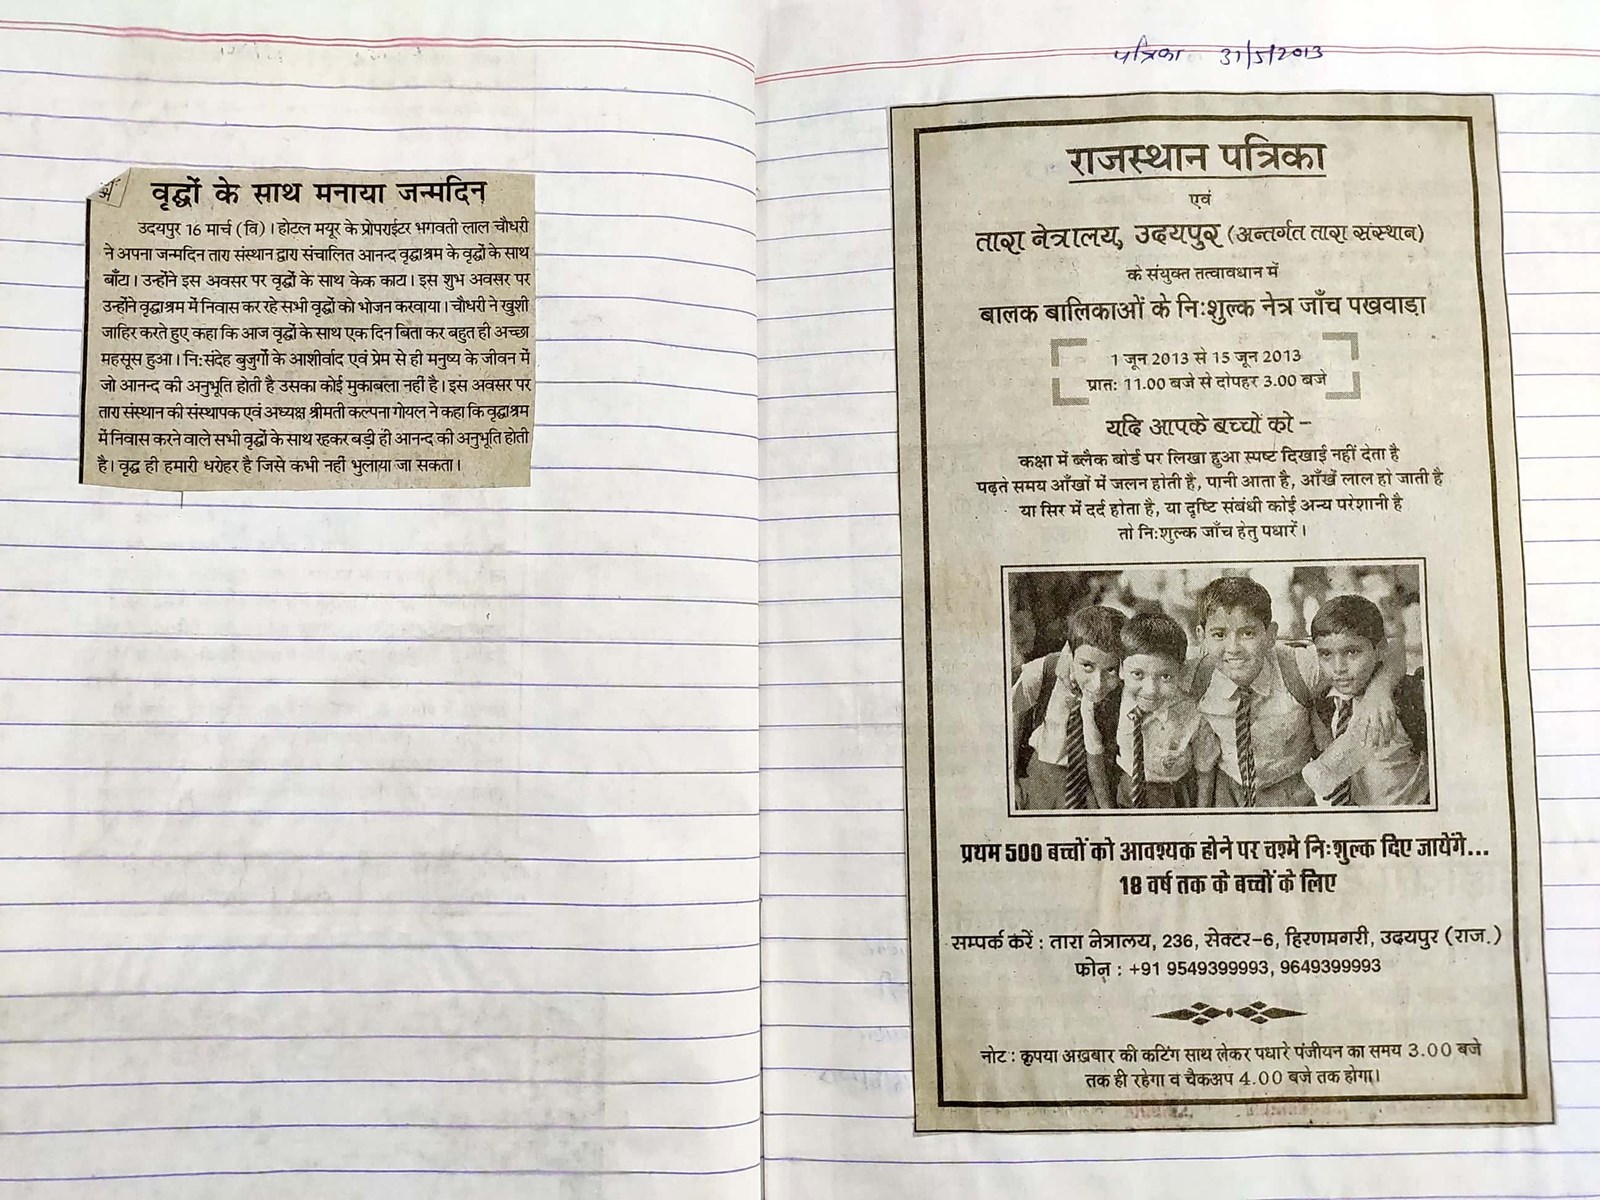 वृद्धों के साथ मनाया जन्मदिन
उदयपुर 16 मार्च (वि)। होटल मयूर के प्रोपराईटर भगवती लाल चौधरी
ने अपना जन्मदिन तारा संस्थान द्वारा संचालित आनन्द वृद्वाश्रम के वृद्वों के साथ
बाँटा। उन्होंने इस अवसर पर वृद्वों के साथ केक काटा। इस शुभ अवसर पर
उन्होंने वृद्वाश्रम में निवास कर रहे सभी वृद्वों को भोजन करवाया। चौधरी ने खुशी
जाहिर करते हुए कहा कि आज वृद्वों के साथ एक दिन बिता कर बहुत ही अच्छा
महसूस हुआ। नि:संदेह बुजुर्गो के आशीर्वाद एवं प्रेम से ही मनुष्य के जीवन में
जो आनन्द की अनुभूति होती है उसका कोई मुकाबला नहीं है। इस अवसर पर
तारा संस्थान की संस्थापक एवं अध्यक्ष श्रीमती कल्पना गोयल ने कहा कि वृद्वाश्रम
में निवास करने वाले सभी वृद्वों के साथ रहकर बड़ी ही आनन्द की अनुभूति होती
है। वृद्व ही हमारी धरोहर है जिसे कभी नहीं भुलाया जा सकता।
पत्रिका 31/5/2013
राजस्थान पत्रिका
एवं
तारा नेत्रालय, उदयपुर (अन्तर्गत तारा संस्थान)
के संयुक्त तत्वावधान में
बालक बालिकाओं के नि:शुल्क नेत्र जाँच पखवाड़ा
1 जून 2013 से 15 जून 2013
प्रात: 11.00 बजे से दोपहर 3.00 बजे
यदि आपके बच्चों को -
कक्षा में ब्लैक बोर्ड पर लिखा हुआ स्पष्ट दिखाई नहीं देता है
पढ़ते समय आँखों में जलन होती है, पानी आता है, आँखें लाल हो जाती है
या सिर में दर्द होता है, या दृष्टि संबंधी कोई अन्य परेशानी है
तो नि:शुल्क जाँच हेतु पधारें।
प्रथम 500 बच्चों को आवश्यक होने पर चश्मे नि:शुल्क दिए जायेंगे...
18 वर्ष तक के बच्चों के लिए
सम्पर्क करें : तारा नेत्रालय, 236, सेक्टर-6, हिरणमगरी, उदयपुर (राज.)
फोन : +91 9549399993, 9649399993
नोट : कृपया अखबार की कटिंग साथ लेकर पधारे पंजीयन का समय 3.00 बजे
तक ही रहेगा व चैकअप 4.00 बजे तक होगा।